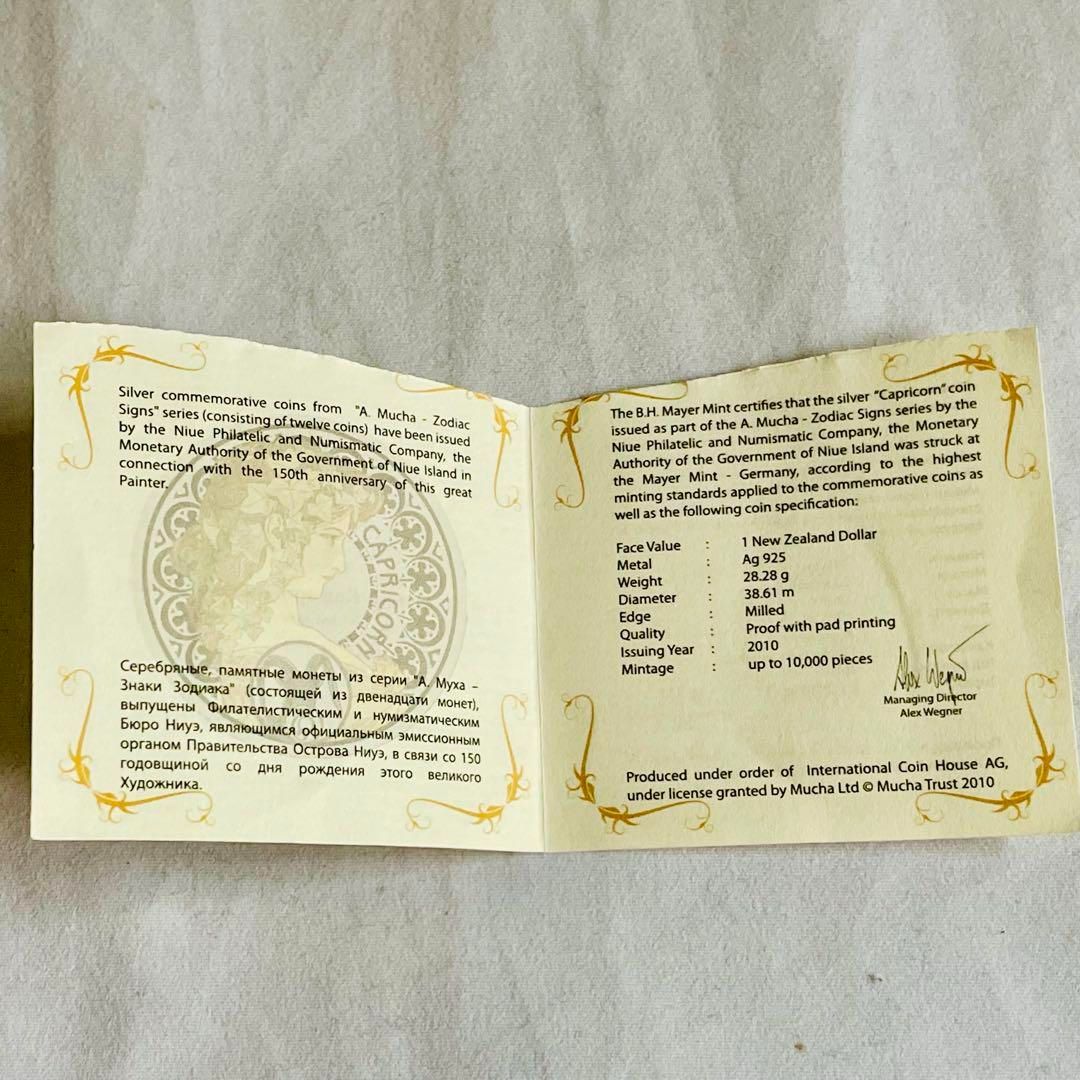 Silver commemorative coins from "A. Mucha - Zodiac
Signs" series (consisting of twelve coins) have been issued
by the Niue Philatelic and Numismatic Company, the
Monetary Authority of the Government of Niue Island in
connection with the 150th anniversary of this great
Painter.
CAPRICORN
Серебряные, памятные монеты из серии "А. Муха –
Знаки Зодиака" (состоящей из двенадцати монет),
выпущены Филателистическим и нумизматическим
Бюро Ниуэ, являющимся официальным эмиссионным
органом Правительства Острова Ниуэ, в связи со 150
годовщиной со дня рождения этого великого
Художника.
The B.H. Mayer Mint certifies that the silver "Capricorn" coin
issued as part of the A. Mucha - Zodiac Signs series by the
Niue Philatelic and Numismatic Company, the Monetary
Authority of the Government of Niue Island was struck at
the Mayer Mint - Germany, according to the highest
minting standards applied to the commemorative coins as
well as the following coin specification:
Face Value : 1 New Zealand Dollar
Metal : Ag 925
Weight : 28.28 g
Diameter : 38.61 m
Edge : Milled
Quality : Proof with pad printing
Issuing Year : 2010
Mintage : up to 10,000 pieces
Alex Wegner
Managing Director
Alex Wegner
Produced under order of International Coin House AG,
under license granted by Mucha Ltd © Mucha Trust 2010